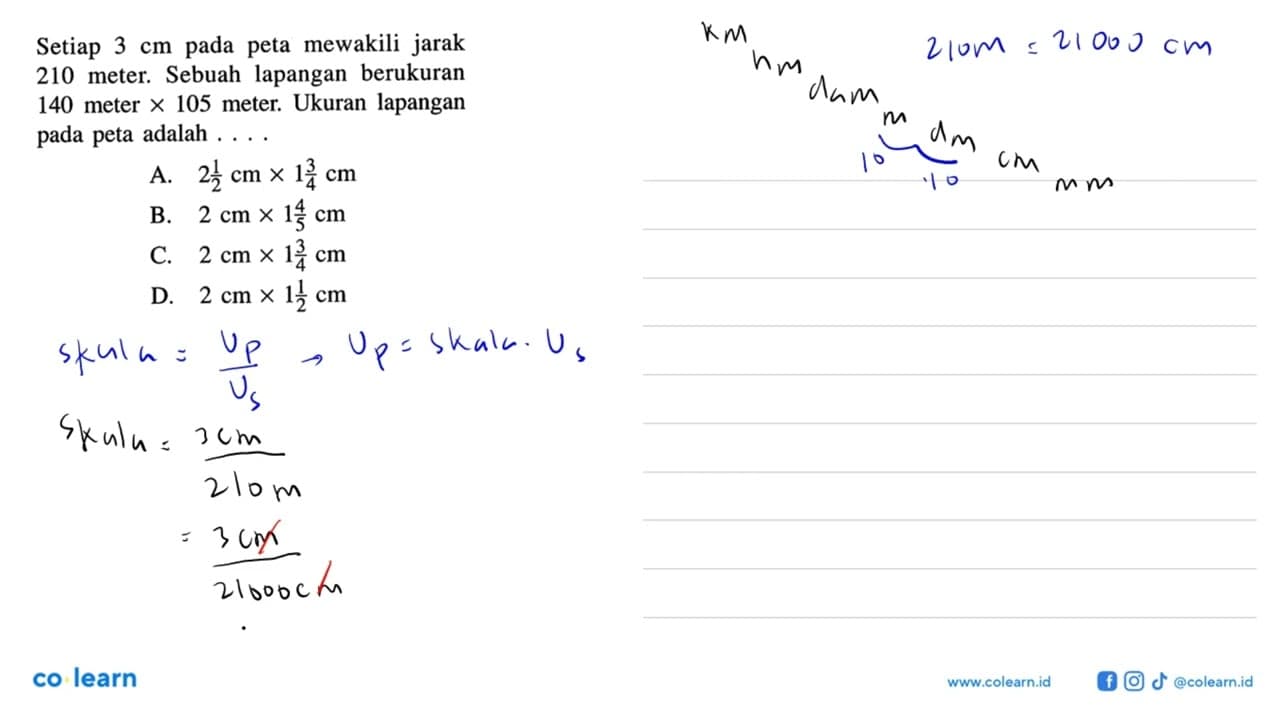 Setiap 3 cm pada peta mewakili jarak
210 meter. Sebuah lapangan berukuran
140 meter × 105 meter. Ukuran lapangan
pada peta adalah . . . .
A. 2 1/2 cm × 1 3/4 cm
B. 2 cm × 1 4/5 cm
C. 2 cm × 1 3/4 cm
D. 2 cm × 1 1/2 cm
skala = Up/Us → Up = skala . Us
Skala = 3 cm / 210 m
= 3 cm / 21000 cm
km
hm
dam
m
dm
cm
mm
10
10
210 m = 21000 cm
co learn
www.colearn.id
@colearn.id